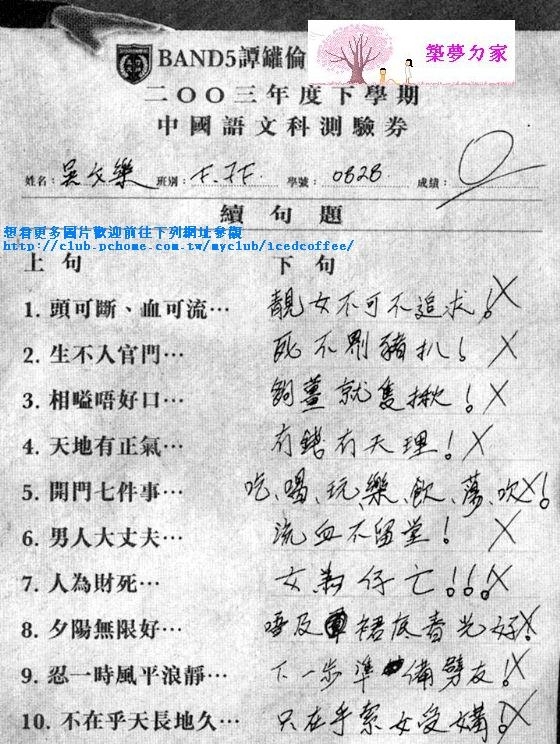 BAND5譚罐倫
築夢ㄉ家
二〇〇三年度下學期
中國語文科測驗券
姓名：吳文樂 班別：F.7F. 學號：0828 成績：0
續句題
想看更多圖片歡迎前往下列網址參觀
http://club.pchome.com.tw/myclub/icedcoffee/
上句 下句
1. 頭可斷、血可流… 靚女不可不追求！X
2. 生不入官門… 死不劏豬扒！X
3. 相嗌唔好口… 夠薑就隻揪！X
4. 天地有正氣… 有錢有天理！X
5. 開門七件事… 吃、喝、玩、樂、飲、蕩、吹！X
6. 男人大丈夫… 流血不留堂！X
7. 人為財死… 女為仔亡！！！X
8. 夕陽無限好… 唔及裙底春光好！X
9. 忍一時風平浪靜… 下一步準備劈友！X
10. 不在乎天長地久… 只在乎索女受媾！X